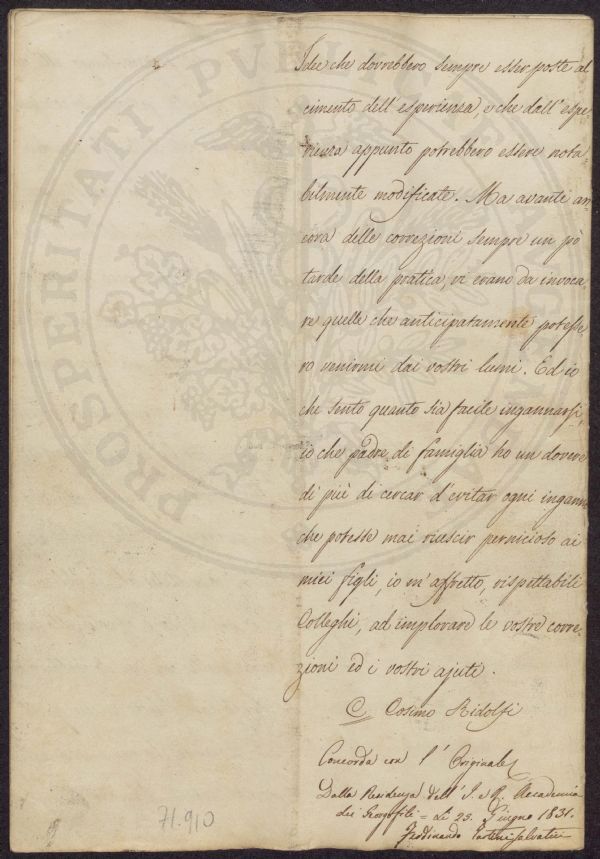 Idee che dovrebbero sempre esser poste al
cimento dell'esperienza, e che dall'espe-
rienza appunto potrebbero essere nota-
bilmente modificate. Ma avanti an-
cora delle correzioni sempre un pò
tarde della pratica, vi erano da invoca-
re quelle che anticipatamente potesse-
ro venirmi dai vostri lumi. Ed io
che sento quanto sia facile ingannarsi,
io che padre di famiglia ho un dovere
di più di cercar d'evitar ogni inganno
che potesse mai riuscir pernicioso ai
miei figli, io m'affretto, rispettabili
Colleghi, ad implorare le vostre corre-
zioni ed i vostri ajuti.
C Cosimo Ridolfi
Concorda con l'Originale
Dalla Residenza dell'I. e R. Accademia
dei Georgofili = Li 25. Giugno 1831.
Ferdinando Tartini Salvatici
71.910
PROSPERITATI PVBLICAE